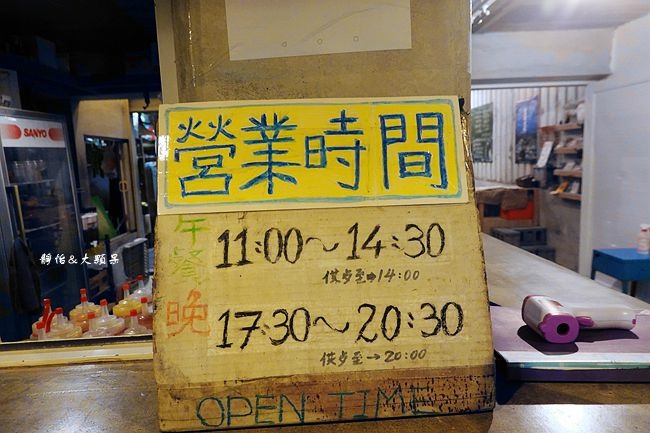 SANYO
營業時間
午餐 11:00～14:30
供歺至→14:00
晚 17:30～20:30
供歺至→20:00
OPEN TIME
靜怡&大顆呆